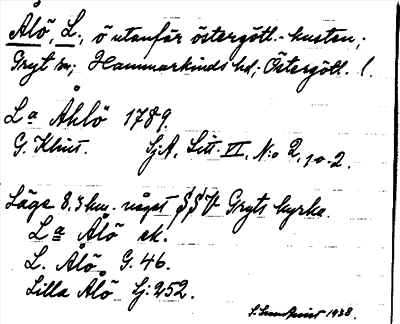 Ålö, L., ö utanför östergötl.-kusten,
Gryt sn; Hammarkinds hd; Östergötl. l.
La Åhlö 1789.
G. Klint. SjA, Litt. VI, N:o 2, 1-2.
Läge 8.3 km. något Gryts kyrka.
La Ålö ek.
L. Ålö G. 46.
Lilla Ålö Sj: 252.
1938.